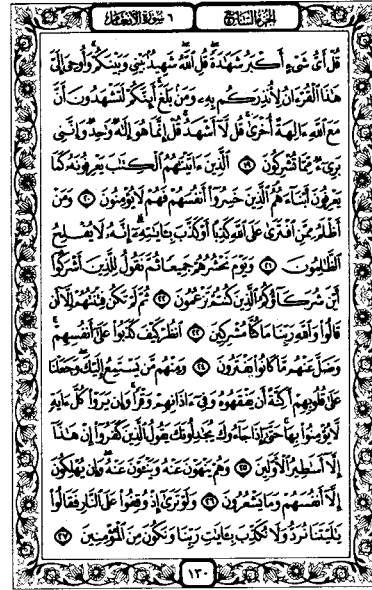 الجزء السابع ٦ سورة الأنعام
قُلْ أَىُّ شَىْءٍ أَكْبَرُ شَهَٰدَةً قُلِ ٱللَّهُ شَهِيدٌۢ بَيْنِى وَبَيْنَكُمْ وَأُوحِىَ إِلَىَّ
هَٰذَا ٱلْقُرْءَانُ لِأُنذِرَكُم بِهِۦ وَمَنۢ بَلَغَ أَئِنَّكُمْ لَتَشْهَدُونَ أَنَّ
مَعَ ٱللَّهِ ءَالِهَةً أُخْرَىٰ قُل لَّآ أَشْهَدُ قُلْ إِنَّمَا هُوَ إِلَٰهٌ وَٰحِدٌ وَإِنَّنِى
بَرِىٓءٌ مِّمَّا تُشْرِكُونَ ١٩ ٱلَّذِينَ ءَاتَيْنَٰهُمُ ٱلْكِتَٰبَ يَعْرِفُونَهُۥ كَمَا
يَعْرِفُونَ أَبْنَآءَهُمُ ٱلَّذِينَ خَسِرُوٓا۟ أَنفُسَهُمْ فَهُمْ لَا يُؤْمِنُونَ ٢٠ وَمَنْ
أَظْلَمُ مِمَّنِ ٱفْتَرَىٰ عَلَى ٱللَّهِ كَذِبًا أَوْ كَذَّبَ بِـَٔايَٰتِهِۦٓ إِنَّهُۥ لَا يُفْلِحُ
ٱلظَّٰلِمُونَ ٢١ وَيَوْمَ نَحْشُرُهُمْ جَمِيعًا ثُمَّ نَقُولُ لِلَّذِينَ أَشْرَكُوٓا۟
أَيْنَ شُرَكَآؤُكُمُ ٱلَّذِينَ كُنتُمْ تَزْعُمُونَ ٢٢ ثُمَّ لَمْ تَكُن فِتْنَتُهُمْ إِلَّآ أَن
قَالُوا۟ وَٱللَّهِ رَبِّنَا مَا كُنَّا مُشْرِكِينَ ٢٣ ٱنظُرْ كَيْفَ كَذَبُوا۟ عَلَىٰٓ أَنفُسِهِمْ
وَضَلَّ عَنْهُم مَّا كَانُوا۟ يَفْتَرُونَ ٢٤ وَمِنْهُم مَّن يَسْتَمِعُ إِلَيْكَ وَجَعَلْنَا
عَلَىٰ قُلُوبِهِمْ أَكِنَّةً أَن يَفْقَهُوهُ وَفِىٓ ءَاذَانِهِمْ وَقْرًا وَإِن يَرَوْا۟ كُلَّ ءَايَةٍ
لَّا يُؤْمِنُوا۟ بِهَا حَتَّىٰٓ إِذَا جَآءُوكَ يُجَٰدِلُونَكَ يَقُولُ ٱلَّذِينَ كَفَرُوٓا۟ إِنْ هَٰذَآ
إِلَّآ أَسَٰطِيرُ ٱلْأَوَّلِينَ ٢٥ وَهُمْ يَنْهَوْنَ عَنْهُ وَيَنْـَٔوْنَ عَنْهُ وَإِن يُهْلِكُونَ
إِلَّآ أَنفُسَهُمْ وَمَا يَشْعُرُونَ ٢٦ وَلَوْ تَرَىٰٓ إِذْ وُقِفُوا۟ عَلَى ٱلنَّارِ فَقَالُوا۟
يَٰلَيْتَنَا نُرَدُّ وَلَا نُكَذِّبَ بِـَٔايَٰتِ رَبِّنَا وَنَكُونَ مِنَ ٱلْمُؤْمِنِينَ ٢٧
١٣٠